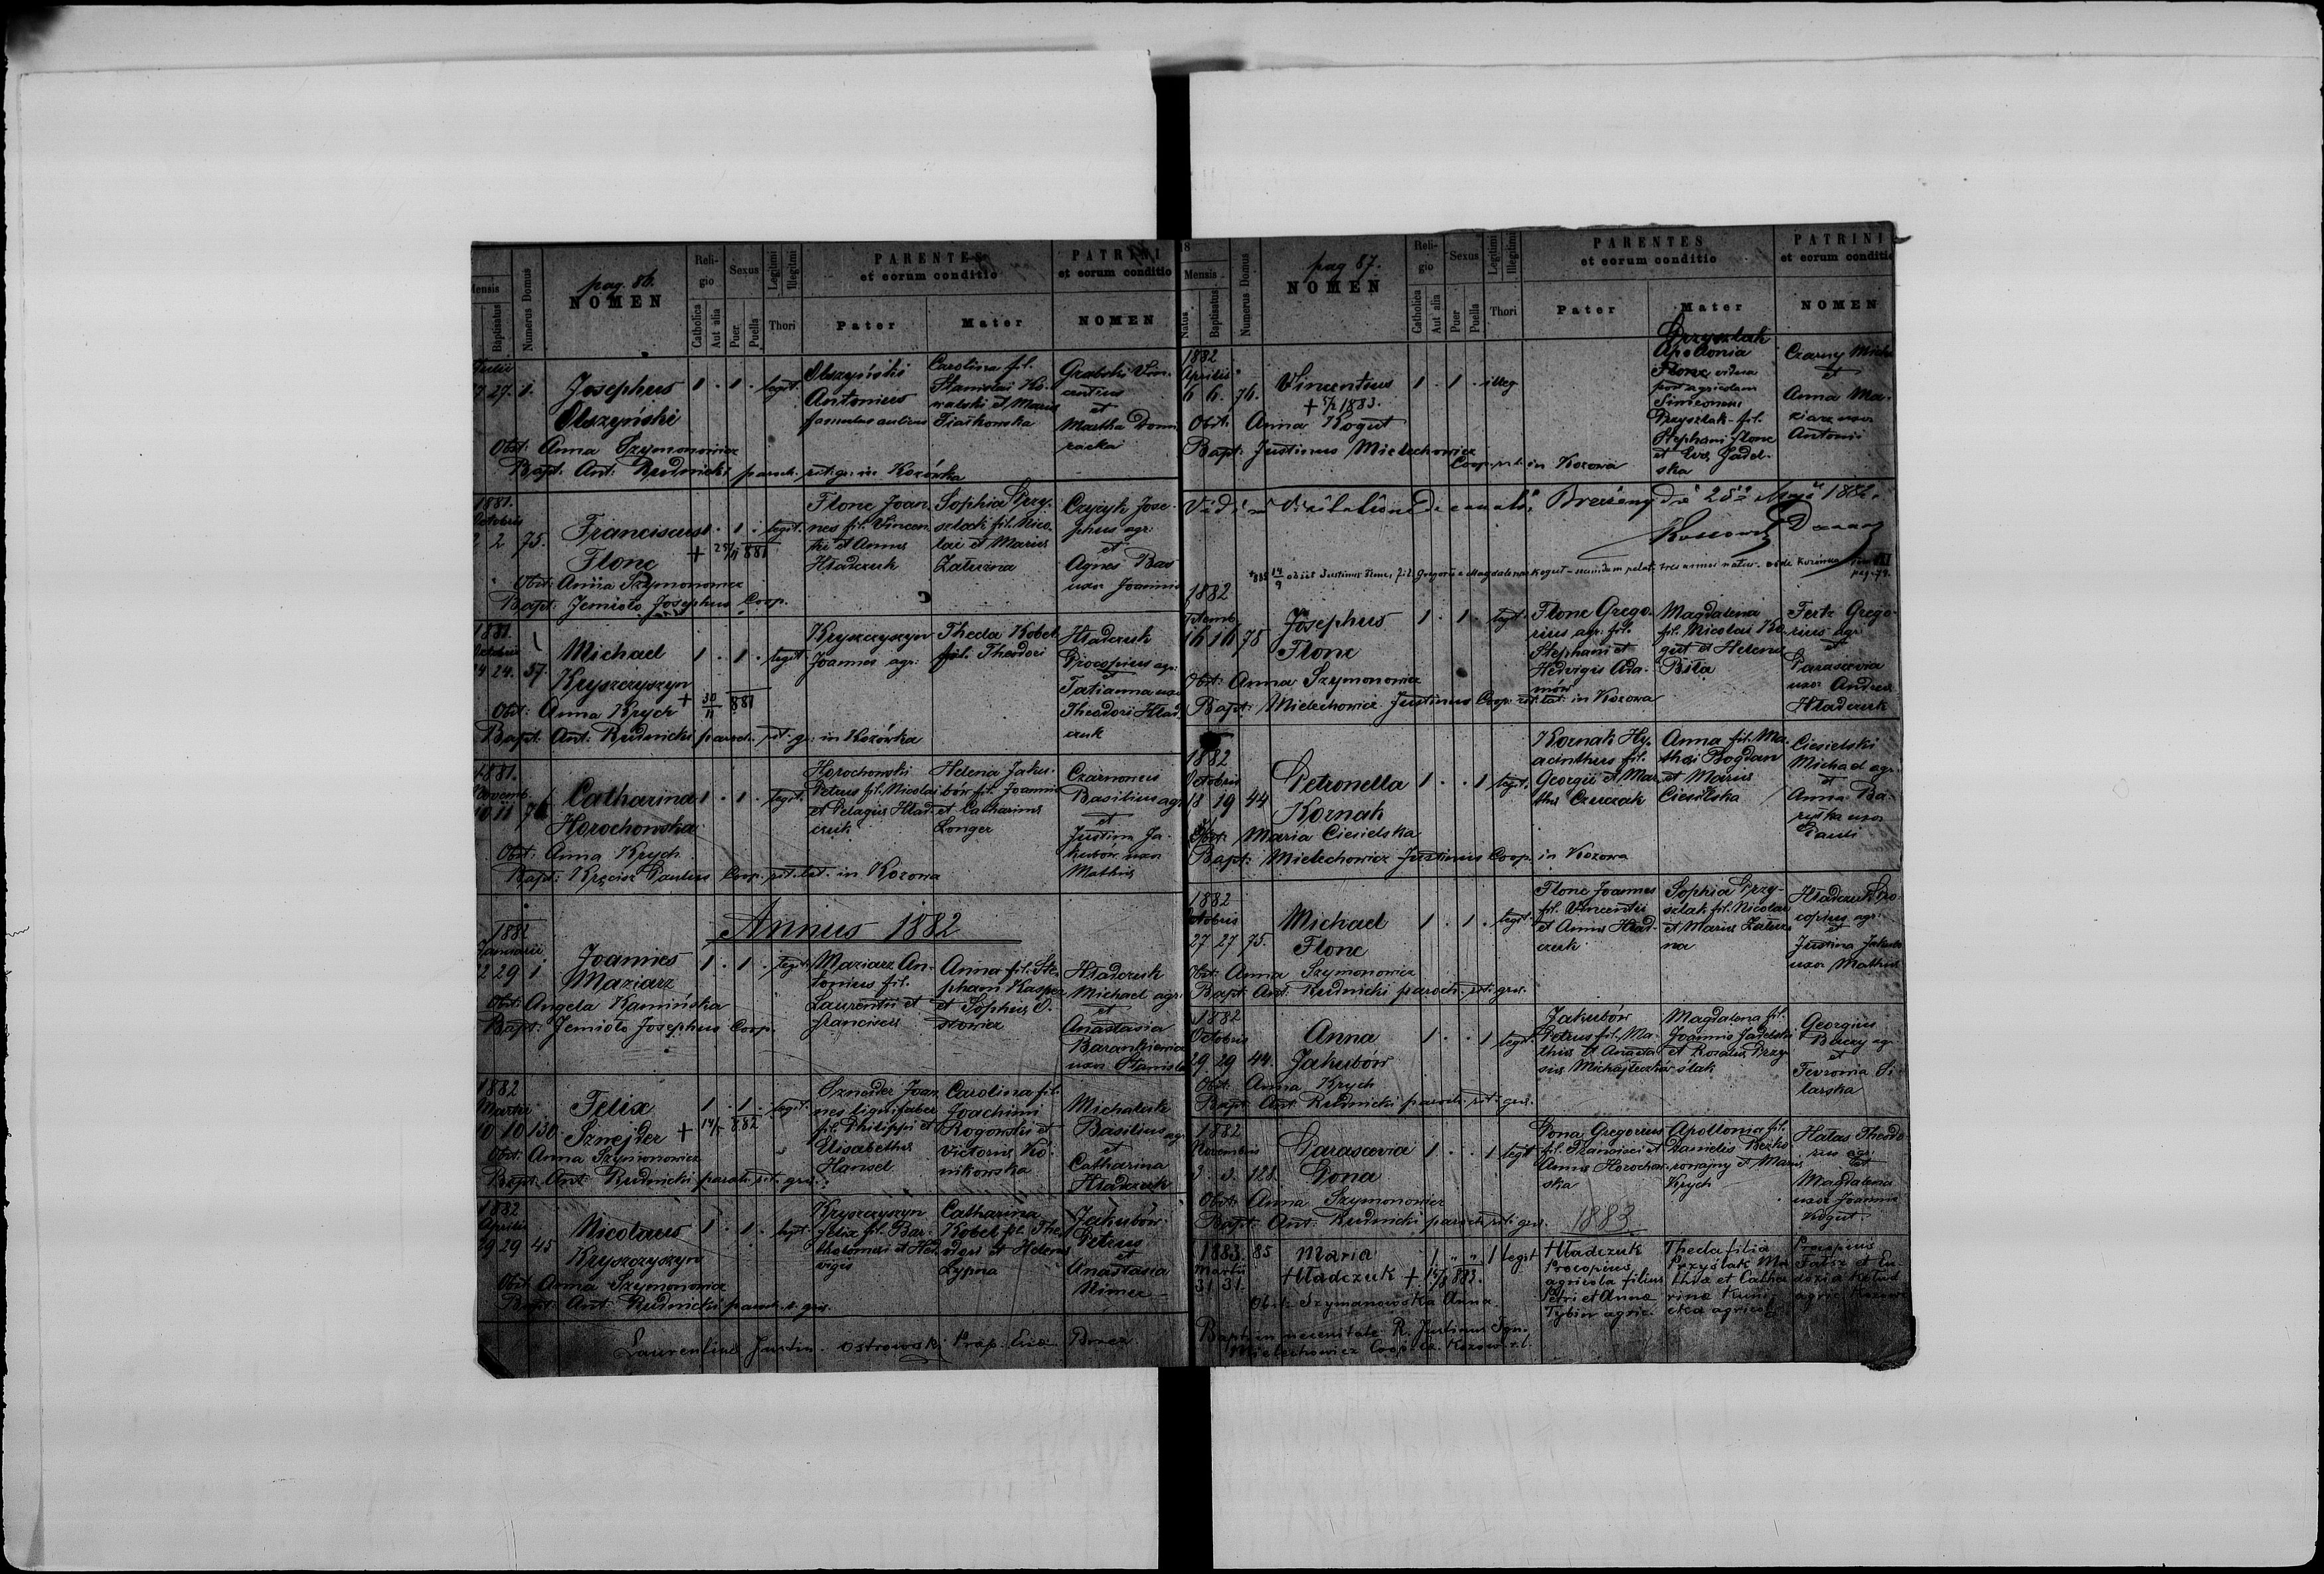 pag. 86.
Mensis
Baptisatus
Numerus Domus
NOMEN
Religio
Catholica
Aut alia
Sexus
Puer
Puella
Legitimi
Illegitimi
Thori
PARENTES
et eorum conditio
Pater
Mater
PATRINI
et eorum conditio
NOMEN
27. 1.
Josephus
Olszyński
1 . 1 . legit.
Olszyński
Antonius
famulus aulicus
Carolina fil.
Stanislai Ko-
walski et Maria
Grabski Vin-
centius
et
Martha Dom
Obst: Anna Szymonowicz
Bapt. Ant. Rudnicki paroch. rit. gr. in Kozówka
1881.
Octobris
2 2 75.
Franciscus
Flonc
. 1 . legit.
+ 881
Flonc Joan-
nes fil. Vincen-
tii et Anna
Hładczuk
Sophia Przy-
szlak fil. Nico-
lai et Maria
Załuzna
Czyżyk Jose-
phus agr:
et
Agnes Bas
uxor Joannis
Obst: Anna Szymonowicz
Bapt: Jemioło Josephus Coop.
1881.
Octobris
24 24. 57.
Michael
Kryszczyszyn
1 . 1 . legit.
+ 30/11 881
Kryszczyszyn
Joannes agr:
Thecla Kobel
fil. Theodori
Hładczuk
Procopius agr:
et
Tatianna uxor
Theodori Hład-
czuk
Obst: Anna Krych
Bapt. Ant. Rudnicki paroch. rit. gr. in Kozówka
1881.
Novemb.
10 11 76
Catharina
Horochowska
1 . 1 . legit.
Horochowski
Petrus fil. Nicolai
et Pelagia Hład-
czuk
Helena Jaku-
bów fil. Joannis
et Catharina
Longer
Czarnonus
Basilius agr
et
Justina Ja-
kubów uxor
Mathis
Obst: Anna Krych
Bapt: Kręcisz Paulus Coop. rit. lat. in Kozowa
Annus 1882
1882
Januarii
22 29 1
Joannes
Maziarz
1 . 1 . legit.
Maziarz An-
tonius fil.
Laurentii et
Francisca
Anna fil. Ste-
phani Kasper
et Sophia O.
słowicz
Hładczuk
Michael agr:
et
Anastasia
Barankiewicz
uxor Stanislai
Obst: Angela Kamińska
Bapt: Jemioło Josephus Coop.
1882
Martii
10 10 130.
Felix
Sznejder
1 . 1 . legit.
+ 882
Sznajder Joan-
nes lignifaber
fil. Philippi et
Elisabetha
Hansel
Carolina fil.
Joachimi
Rogowski et
Victoria Ko-
nikowska
Michaluk
Basilius agr
et
Catharina
Hładczuk
Obst: Anna Szymonowicz
Bapt. Ant. Rudnicki paroch. rit. graec.
1882
Aprilis
29 29 45
Nicolaus
Kryszczyszyn
1 . 1 . legit.
Kryszczyszyn
Felix fil. Bar-
tholomei et Hed-
vigis
Catharina
Kobel fil. The-
odori et Helena
Łypna
Jakubów
Petrus
et
Anastasia
Nimer
Obst: Anna Szymonowicz
Bapt. Ant. Rudnicki paroch. r. graec.
Laurentius Justin. Ostrowski
pag 87.
18
Mensis
Natus
Baptisatus
Numerus Domus
NOMEN
Religio
Catholica
Aut alia
Sexus
Puer
Puella
Legitimi
Illegitimi
Thori
PARENTES
et eorum conditio
Pater
Mater
PATRINI
et eorum conditio
NOMEN
1882
Aprilis
6 6. 76.
Vincentius
+ 1883.
1 . 1 . illeg
Przyszlak
Apolonia
Flonc vidua
post agricolam
Simeonem
Przyszlak - fil.
Stephani Flonc
et Eva Jadel-
ska
Czarny Mich
et
Anna Ma-
ziarz uxor
Antonii
Obst: Anna Kogut
Bapt: Justinus Mielechowicz
Coop. r. l. in Kozowa
Vidi in Visitatione decanali Brzeżany die 25a Maji 1882.
1882
16 16 78
Josephus
Flonc
1 . 1 . legit.
Flonc Grego-
rius agr. fil.
Stephani et
Hedvigis Ada-
mów
Magdalena
fil. Nicolai Ko-
gut et Helena
Biła
Fertz Grego-
rius agr:
et
Parascevia
uxor Andrea
Hładczuk
Obst: Anna Szymonowicz
Bapt: Mielechowicz Justinus Coop. rit. lat. in Kozowa
1882
Octobris
18 19 44
Petronella
Kornak
1 . . 1 legit.
Kornak Hy-
acinthus fil.
Georgii et Mar-
tha Czuczak
Anna fil. Ma-
thei Bogdan
et Maria
Ciesielska
Ciesielski
Michael agr.
et
Anna Ba-
ryska uxor
Pauli
Obst: Maria Ciesielska
Bapt: Mielechowicz Justinus Coop. in Kozowa
1882
Octobris
27 27 75.
Michael
Flonc
1 . 1 . legit.
Flonc Joannes
fil. Vincentii
et Anna Hład-
czuk
Sophia Przy-
szlak fil. Nicolai
et Maria Załuz-
na
Hładczuk Pro-
copius agr.
et
Justina Jakubów
uxor Mathis
Obst: Anna Szymonowicz
Bapt. Ant. Rudnicki paroch. rit. graec.
1882
Octobris
29 29 44.
Anna
Jakubów
1 . . 1 legit.
Jakubów
Petrus fil. Ma-
this et Anasta-
sia Michajleczków
Magdalena fil.
Joannis Jadelski
et Rosalia Przy-
szlak
Georgius
agr
et
Fevronia Si-
larska
Obst: Anna Krych
Bapt: Ant. Rudnicki paroch. rit. graec.
1882
Novembris
3. 3. 128.
Parascevia
Dona
1 . . 1 legit
Dona Gregorius
fil. Francisci et
Anna Horochow-
ska
Apollonia fil.
Danielis Bezko-
ronajny et Maria
Krych
Hałas Theodo-
rus agr:
et
Magdalena
uxor Joannis
Kogut
Obst: Anna Szymonowicz
Bapt: Ant. Rudnicki paroch. rit. graec.
1883
1883. 85
Martii
31 31.
Maria
Hładczuk
1 " " 1 legit
+ 883.
Hładczuk
Procopius
agricola filius
Petri et Anna
Tybin agric.
Thecla filia
Przyślak Ma-
thia et Catha-
rina Kuni-
cka agricola
Procopius
Fatsz et Eu-
doxia
Obst: Szymanowska Anna.
Bapt. in necessitate R. Justinus Ign.
Mielechowicz Coop. Kozow r. l.